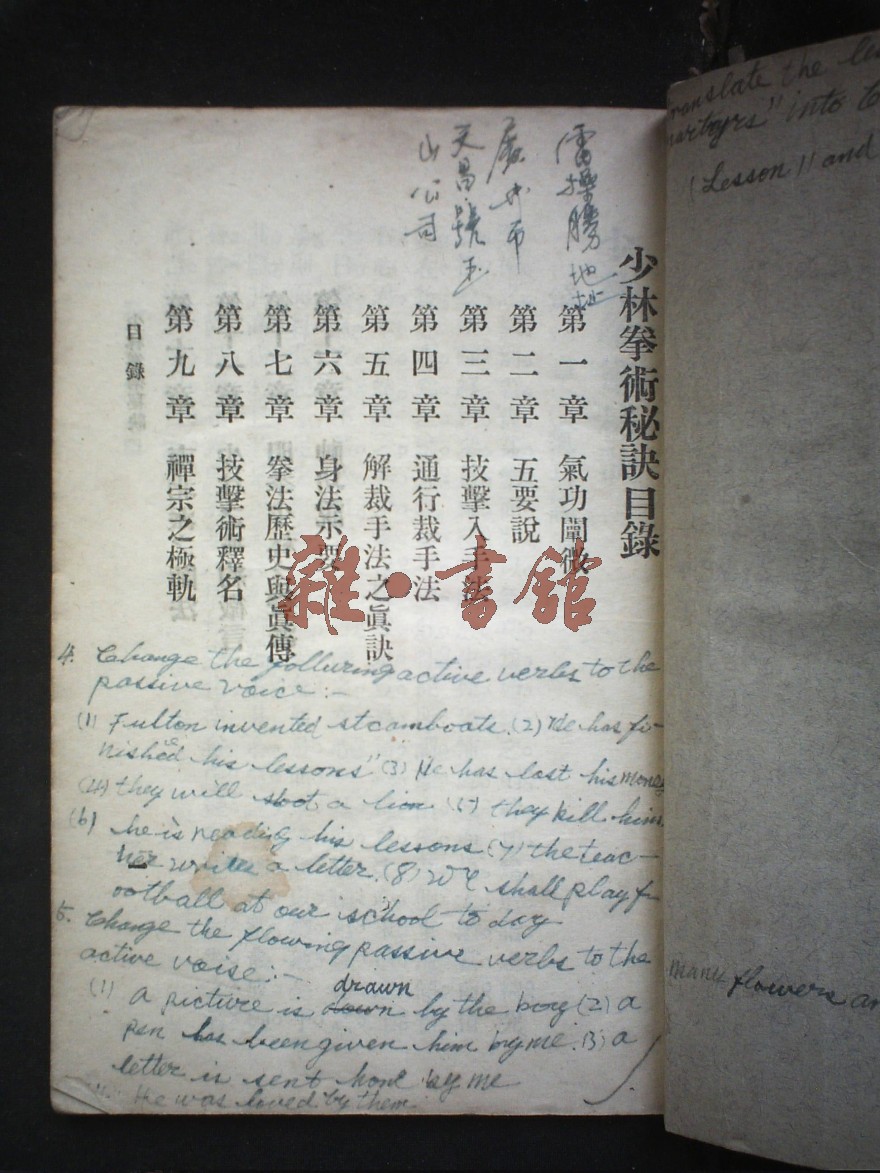 少林拳術秘訣目錄
第一章 氣功闡微
第二章 五要說
第三章 技擊入手法
第四章 通行裁手法
第五章 解裁手法之眞訣
第六章 身法示要
第七章 拳法歷史與眞傳
第八章 技擊術釋名
第九章 禪宗之極軌
目錄
一
勝地址
山公司
雜·書館
4. Change the folluring active verbs to the
passive voice :-
(1) Fulton invented steamboats. (2) He has fi-
nished his lessons" (3) He has lost his money
(4) they will shoot a lion (5) they kill him.
(6) he is reading his lessons (7) the teac-
her writes a letter. (8) We shall play f-
ootball at our school to day
5. Change the flowing passive verbs to the
active voise :-
drawn
(1) a picture is down by the boy (2) a
pen has been given him by me. (3) a
letter is sent home by me
He was loved by them
translate the
martyrs" into
(Lesson 11 and
many flowers